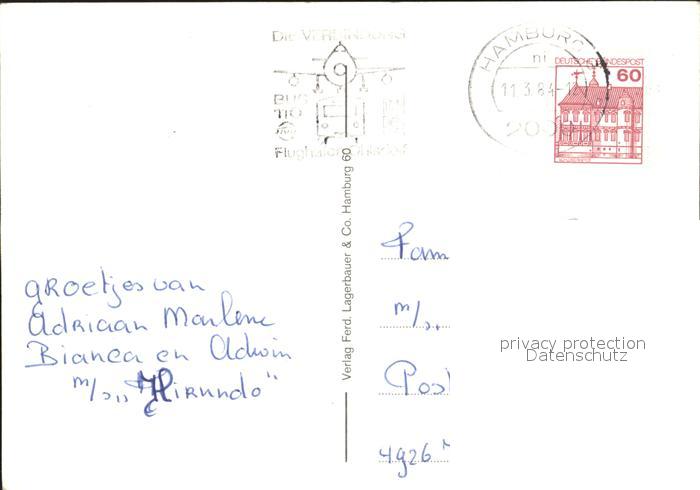 Die VERBINDUNG
BUS
110
Flughafen Ohlsdorf
HAMBURG
11.3.84-12
DEUTSCHE BUNDESPOST
60
Verlag Ferd. Lagerbauer & Co. Hamburg 60
groetjes van
Adriaan Marlene
Bianca en Adwin
m/s „Hirundo"
Fam
m/s „
Pos
4926
privacy protection
Datenschutz